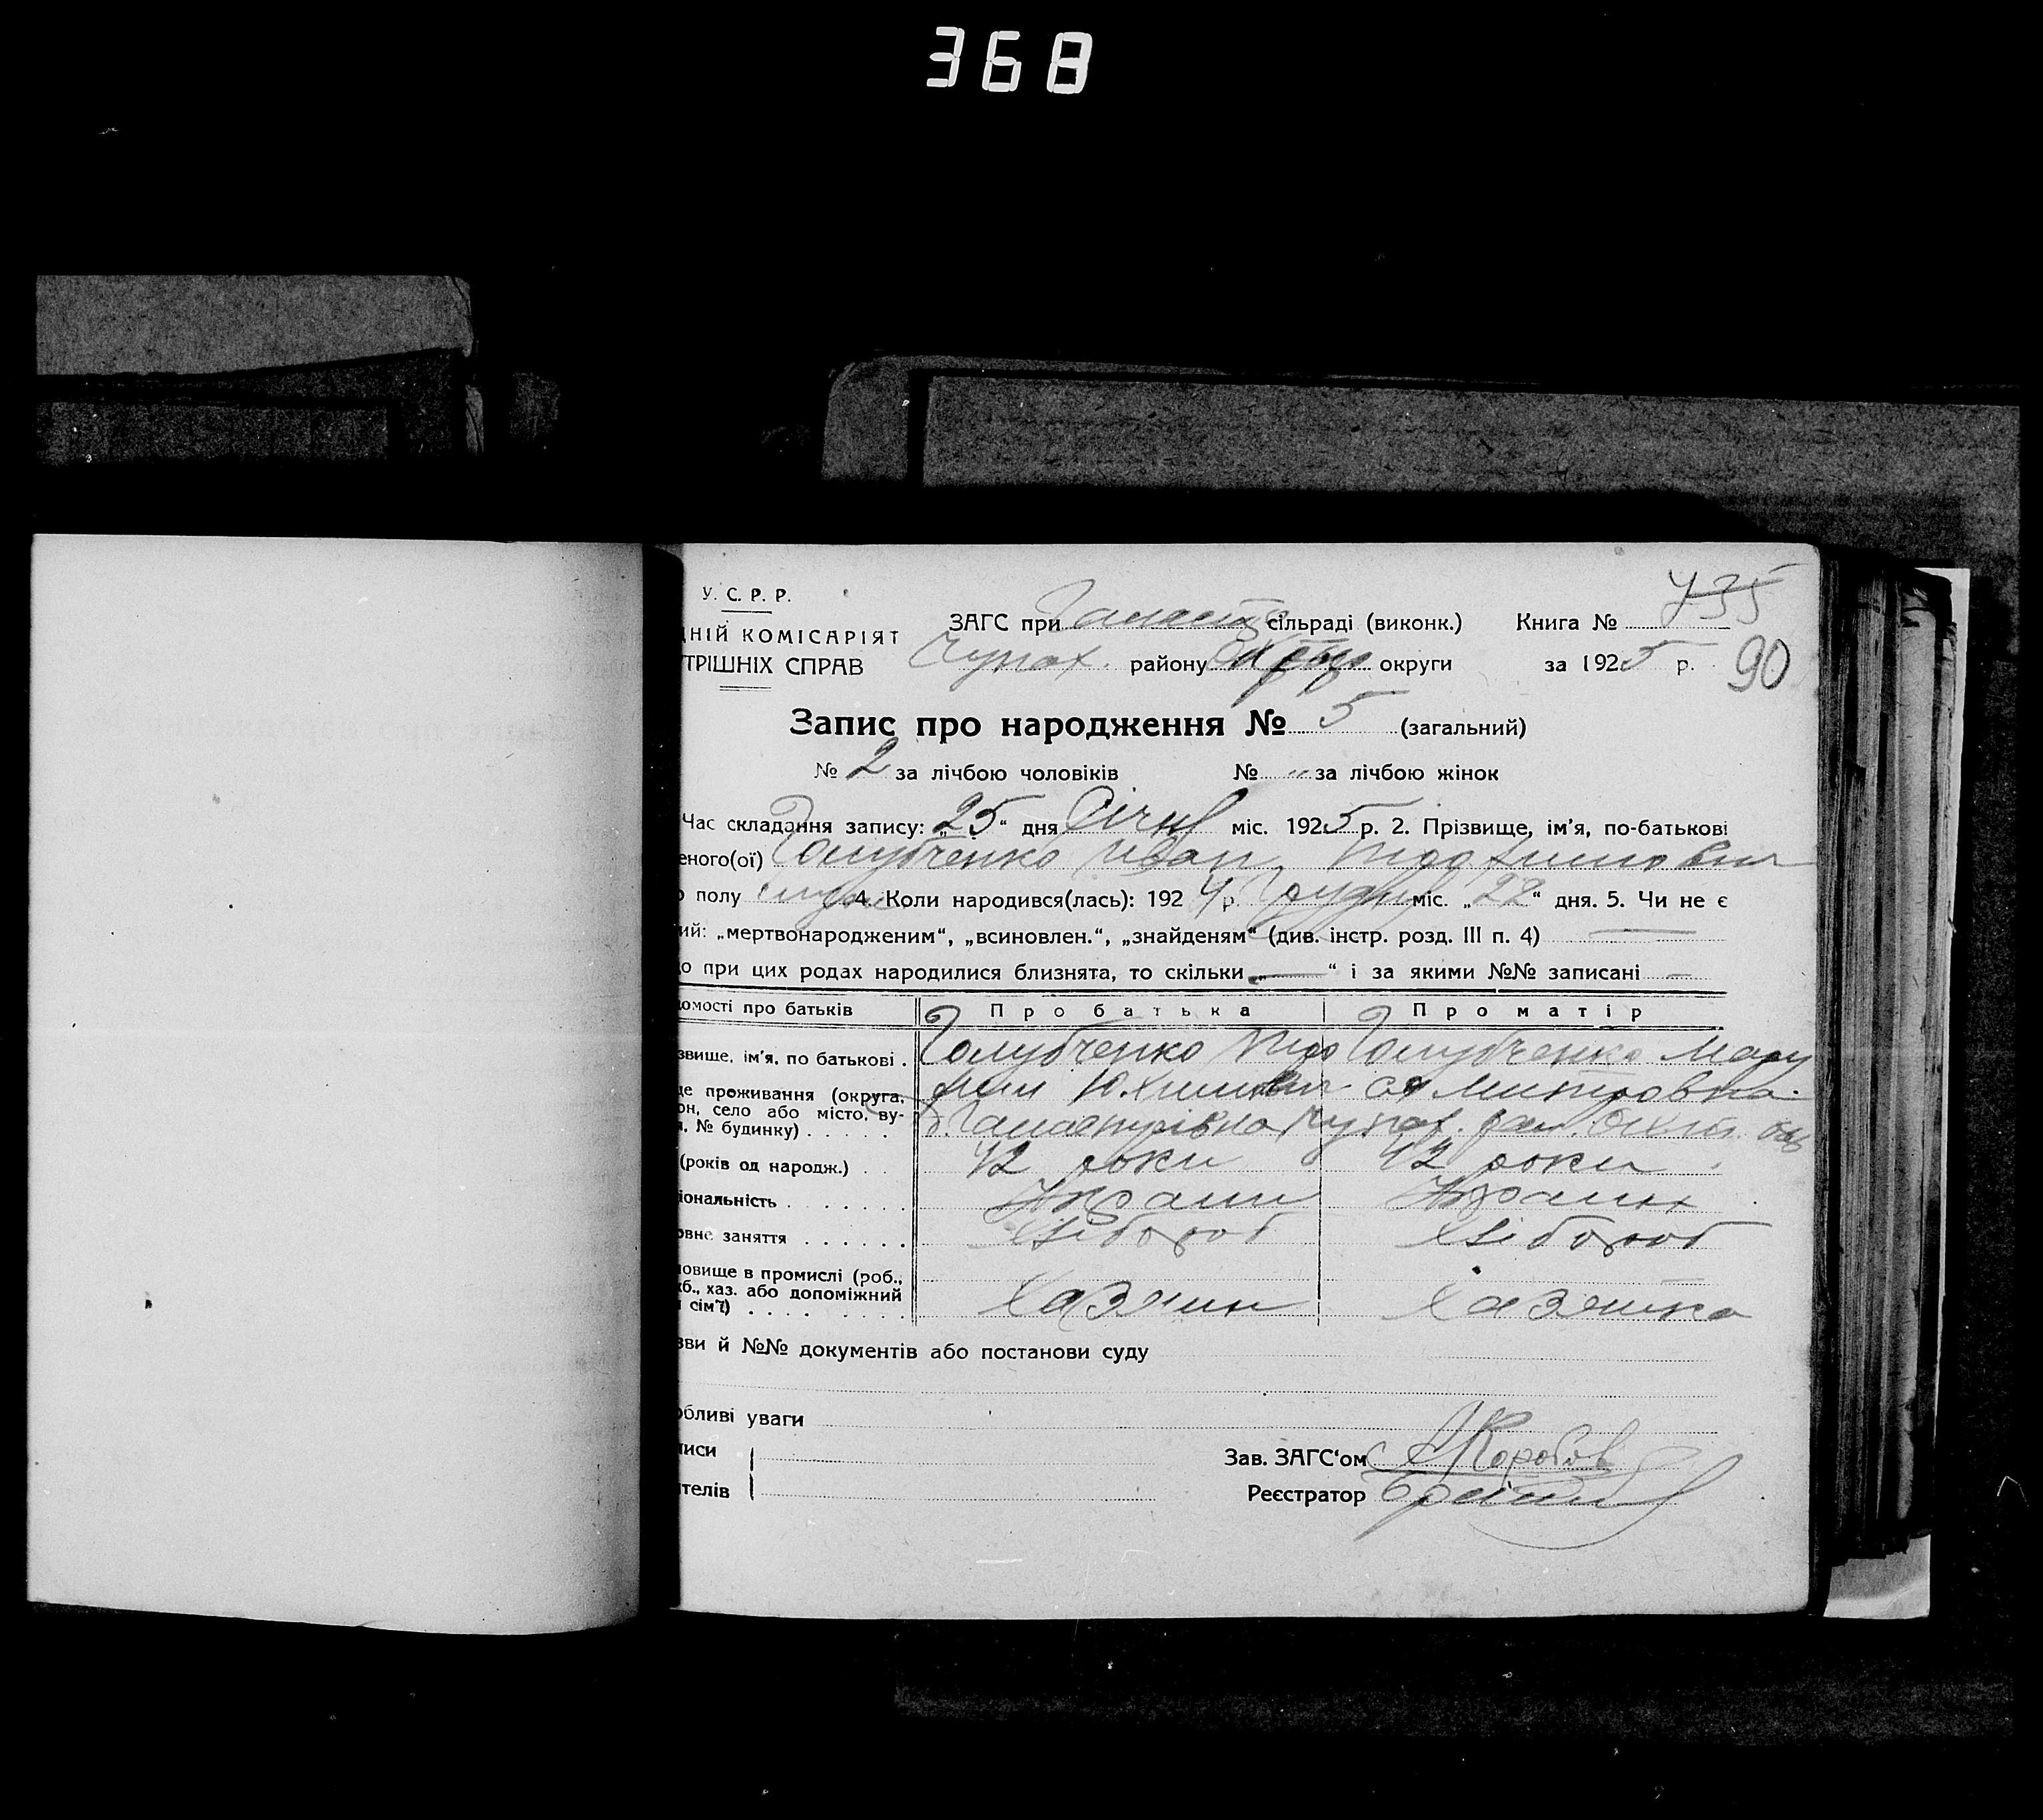 368
У. С. Р. Р.
735
ЗАГС при сільраді (виконк.) Книга №
НІЙ КОМІСАРІЯТ
ТРІШНІХ СПРАВ Чупах. району округи за 1925 р. 90
Запис про народження № 5 (загальний)
№ 2 за лічбою чоловіків № „ за лічбою жінок
Час складання запису: „25“ дня Січня міс. 1925 р. 2. Прізвище, ім’я, по-батькові
еного(ої) Голубченко Иван
полу 4. Коли народився(лась): 1924 р. Грудня міс. „22“ дня. 5. Чи не є
ий: „мертвонародженим“, „всиновлен.“, „знайденям“ (див. інстр. розд. III п. 4) —
о при цих родах народилися близнята, то скільки „—“ і за якими №№ записані —
домості про батьків Про батька Про матір
звище, ім’я, по батькові . Голубченко Голубченко Мару
де проживання (округа, Юхимович Митровна
он, село або місто, ву-
, № будинку) . . . . . Чупах. рай.
(років од народж.) . . 42 роки 42 роки
іональність . . . . . . . Украин Украин
овне заняття . . . . . . Хлібороб Хлібороб
овище в промислі (роб.,
б., хаз. або допоміжний
сім’ї) . . . . . . . . Хазяин Хазяйка
зви й №№ документів або постанови суду
обливі уваги
писи
Зав. ЗАГС‘ом Коробов
ителів
Реєстратор